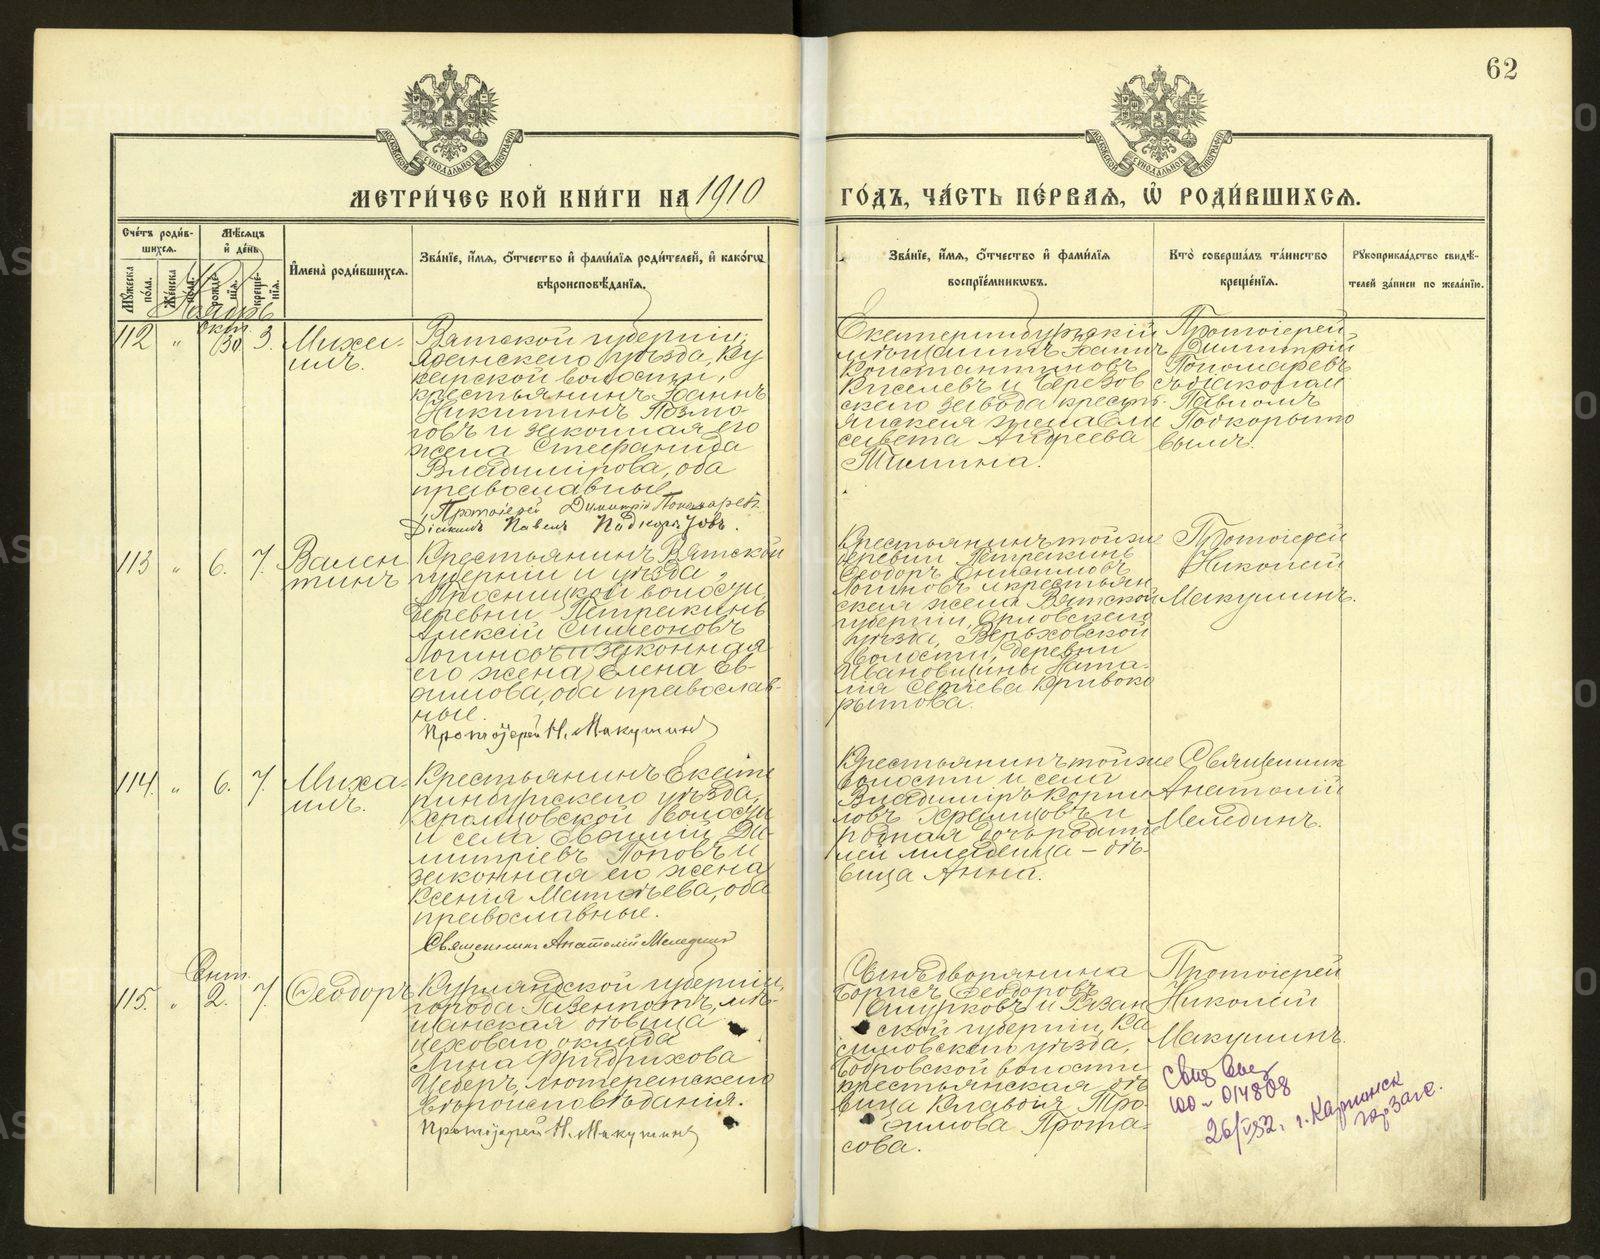 62
МЕТРИ́ЧЕСКОЙ КНИ́ГИ НА 1910
ГО́ДЪ, ЧА́СТЬ ПЕ́РВАЯ, Ѡ҆ РОДИ́ВШИХСЯ.
Сче́тъ роди́вшихся.
Мꙋ́жеска по́ла.
Же́нска по́ла.
Мѣ́сяцъ и҆ де́нь
рожде́нїя.
креще́нїя.
И҆мена̀ роди́вшихся.
Зва́нїе, и҆́мя, ѻ҆́тчество и҆ фами́лїя роди́телей, и҆ како́гѡ
вѣроисповѣ́данїя.
Зва́нїе, и҆́мя, ѻ҆́тчество и҆ фами́лїя
воспрїе́мниковъ.
Кто̀ соверша́лъ та́инство
креще́нїя.
Рꙋкоприкла́дство свидѣ́-
телей за́писи по жела́нїю.
Ноябрь
112 „ окт. 30 3. Михаи-
илъ.
Вятской губерніи,
Яранскаго уѣзда, Ку
карской волости,
крестьянинъ Іоаннъ
Никитинъ Возмо-
говъ и законная его
жена Стефанида
Владимірова, оба
православные
Протоіерей Димитрій Пономаревъ.
Діаконъ Павелъ Подкорытовъ.
Екатеринбургскій
мѣщанинъ Іоаннъ
Константиновъ
Киселевъ и Березов
скаго завода крест-
янская жена Ели
савета Андреева
Тимина.
Протоіерей
Димитрій
Пономаревъ
съ діакономъ
Павломъ
Подкорыто
вымъ.
113 „ 6. 7. Вален
тинъ
Крестьянинъ Вятской
губерніи и уѣзда,
Мросницкой волости,
деревни Петрякинъ
Алексій Симеоновъ
Логиновъ и законная
его жена Елена Ев-
фимова, оба православ-
ные.
Протоіерей Н. Макушинъ
Крестьянинъ той же
деревни Петрякинъ
Ѳеодоръ Онисимовъ
Логиновъ и крестьян
ская жена Вятской
губерніи, Орловскаго
уѣзда, Верховской
волости, деревни
Ивановщины Ната-
лія Сергіева Кривоко
рытова.
Протоіерей
Николай
Макушинъ.
114. „ 6. 7. Миха-
илъ.
Крестьянинъ Екате
ринбургскаго уѣзда,
Храмцовской волости
и села Евфимій Ди-
митріевъ Поповъ и
законная его жена
Ксенія Матѳѣева, оба
православные.
Священникъ Анатолій Мелединъ
Крестьянинъ той же
волости и села
Владиміръ Корни
ловъ Храмцовъ и
родная дочь родите
лей младенца – дѣ-
вица Анна.
Священник
Анатолій
Мелединъ.
115. „ Сент. 2. 7. Ѳеодоръ
Курляндской губерніи,
города Газенпотъ, мѣ-
щанская дѣвица
цеховаго оклада
Лина Фридрихова
Цеберъ, лютеранскаго
вѣроисповѣданія.
Протоіерей Н. Макушинъ
Сынъ дворянина
Борисъ Ѳеодоровъ
Смурковъ и Рязан
ской губерніи, Ка
симовскаго уѣзда,
Бобровской волости
крестьянская дѣ
вица Клавдія Тро-
фимова Прота-
сова.
Протоіерей
Николай
Макушинъ.
100 – 014808